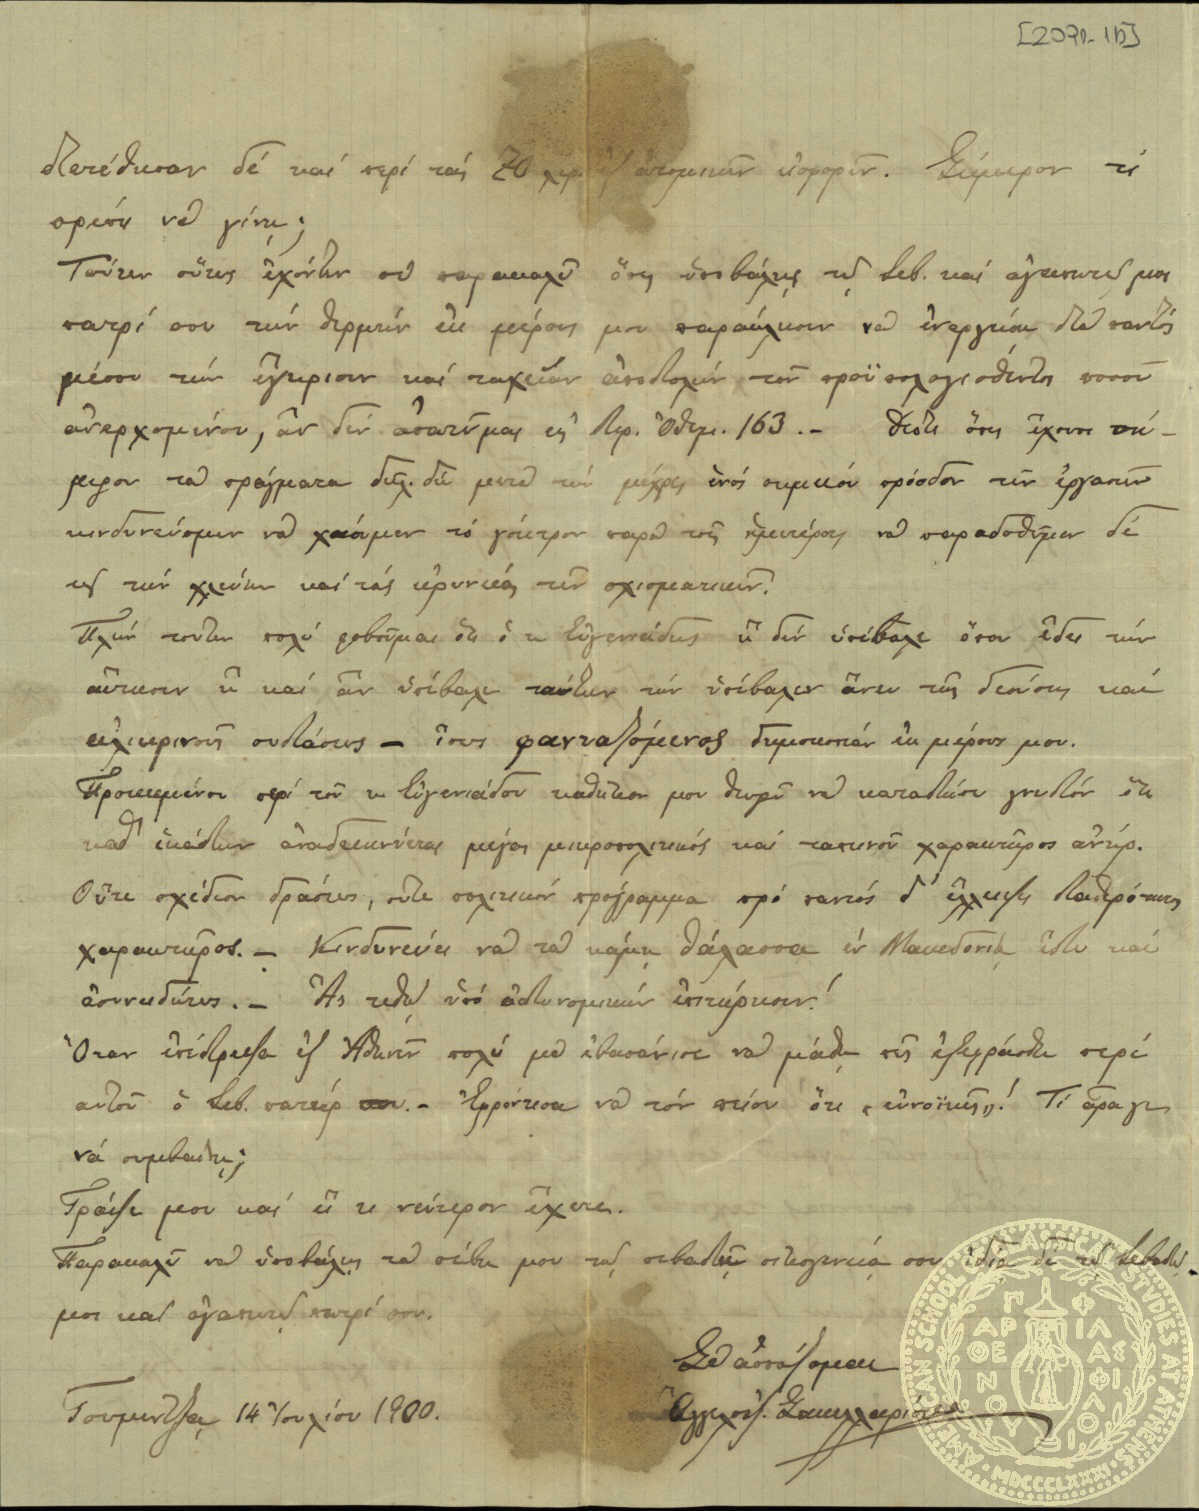 [2071-11]
διετέθησαν δέ καί περί τάς 20 ἀτομικῶν εἰσφορῶν. Σήμερον τί
πρέπει νὰ γίνῃ;
Τούτων οὕτως ἐχόντων σὲ παρακαλῶ ὅπως ὑποβάλῃς τῷ Σεβ. καί ἀγαπητῷ μοι
πατρί σου τήν θερμήν ἐκ μέρους μου παράκλησιν νὰ ἐνεργήσῃ διὰ παντός
μέσου τήν ἔγκρισιν καί ταχεῖαν ἀποστολήν τοῦ προϋπολογισθέντος ποσοῦ
ἀνερχομένου, ἄν δέν ἀπατῶμαι εἰς λιρ. Ὀθωμ. 163.- διότι ὅπως ἔχουσι σή-
μερον τὰ πράγματα δηλ. δή μετὰ τήν μέχρις ἑνός σημείου πρόοδον τῶν ἐργασιῶν
κινδυνεύομεν νὰ χάσωμεν τό γόητρον παρὰ τοῖς ἡμετέροις νὰ παραδοθῶμεν δέ
εἰς τήν χλεύην καί τάς εἰρωνείας τῶν σχισματικῶν.
Πλήν τούτων πολύ φοβοῦμαι ὅτι ὁ κ. Εὐγενιάδης ἤ δέν ὑπέβαλε ὅπου ἔδει τήν
αἴτησιν ἤ καί ἄν ὑπέβαλε ταύτην τήν ὑπέβαλεν ἄνευ τῆς δεούσης καί
εἰλικρινοῦς συστάσεως - ἴσως φανταζόμενος δημοκοπίαν ἐκ μέρους μου.
Προκειμένου περί τοῦ κ. Εὐγενιάδου καθῆκον μου θεωρῶ νὰ καταστήσω γνωστόν ὅτι
καθ' ἑκάστην ἀναδεικνύεται μέγας μικροπολιτικός καί ταπεινοῦ χαρακτῆρος ἀνήρ.
Οὔτε σχέδιον δράσεως, οὔτε πολιτικόν πρόγραμμα πρό παντός δ' ἔλλειψις σταθερότητος
χαρακτῆρος. - Κινδυνεύει νὰ τὰ κάμῃ θάλασσα ἐν Μακεδονίᾳ ἔστω καί
ἀσυνειδήτως. - Ἄς τεθῇ ὑπό ἀστυνομικήν ἐπιτήρησιν!
Ὅταν ἐπέστρεψα ἐξ Ἀθηνῶν πολύ μὲ ἐβασάνισε νὰ μάθῃ πῶς ἐξεφράσθη περί
αὐτοῦ ὁ Σεβ. πατήρ σου. - Ἐφρόντισα νὰ τόν πείσω ὅτι «εὐνοϊκῶς»! Τί ἆρα γε
νά συμβαίνῃ;
Γράψε μου καί εἴ τι νεώτερον ἔχετε.
Παρακαλῶ νὰ ὑποβάλῃς τὰ σέβη μου τῇ σεβαστῇ οἰκογενείᾳ σου ἰδίᾳ δέ τῷ Σεβαστῷ
μοι καί ἀγαπητῷ πατρί σου.
Σὲ ἀσπάζομαι
Γουμέντζα, 14 Ἰουλίου 1900.
Ἄγγελος Σακελλαρίου
AMERICAN SCHOOL OF CLASSICAL STUDIES AT ATHENS
ΠΑΡΘΕΝΟΥ ΦΙΛΑΣ ΦΙΛΟΙ
MDCCCLXXXI